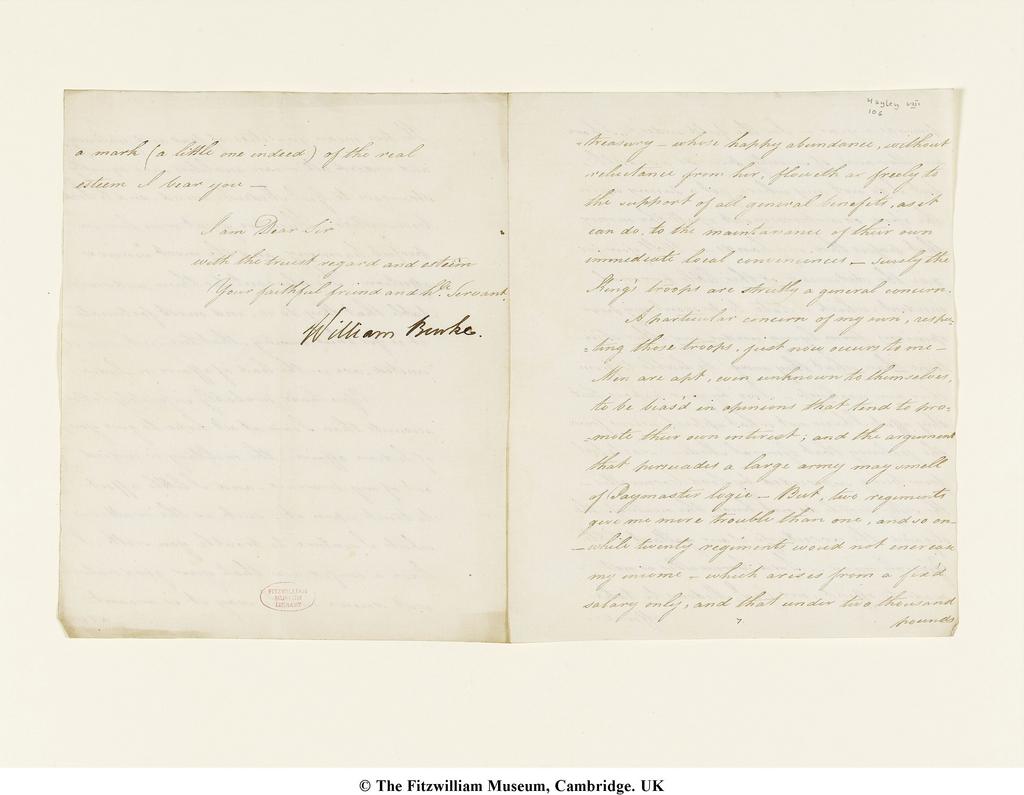 a mark (a little one indeed) of the real
esteem I bear you —
I am Dear Sir
with the truest regard and esteem
Your faithful friend and hble. Servant
William Burke.
FITZWILLIAM
MUSEUM
LIBRARY
Hayley VIII
106
-treasury — whose happy abundance, without
reluctance from her, floweth as freely to
the support of all general benefits, as it
can do, to the maintanance of their own
immediate local conveniences — surely the
King's troops are strictly a general concern.
A particular concern of my own, respec-
-ting those troops, just now occurs to me —
Men are apt, even unknown to themselves,
to be bias'd in opinions that tend to pro-
-mote their own interest; and the argument
that persuades a large army may smell
of Paymaster logic — But, two regiments
give me more trouble than one, and so on —
— while twenty regiments would not encrease
my income — which arises from a fix'd
salary only, and that under two thousand
pounds
7.
© The Fitzwilliam Museum, Cambridge. UK